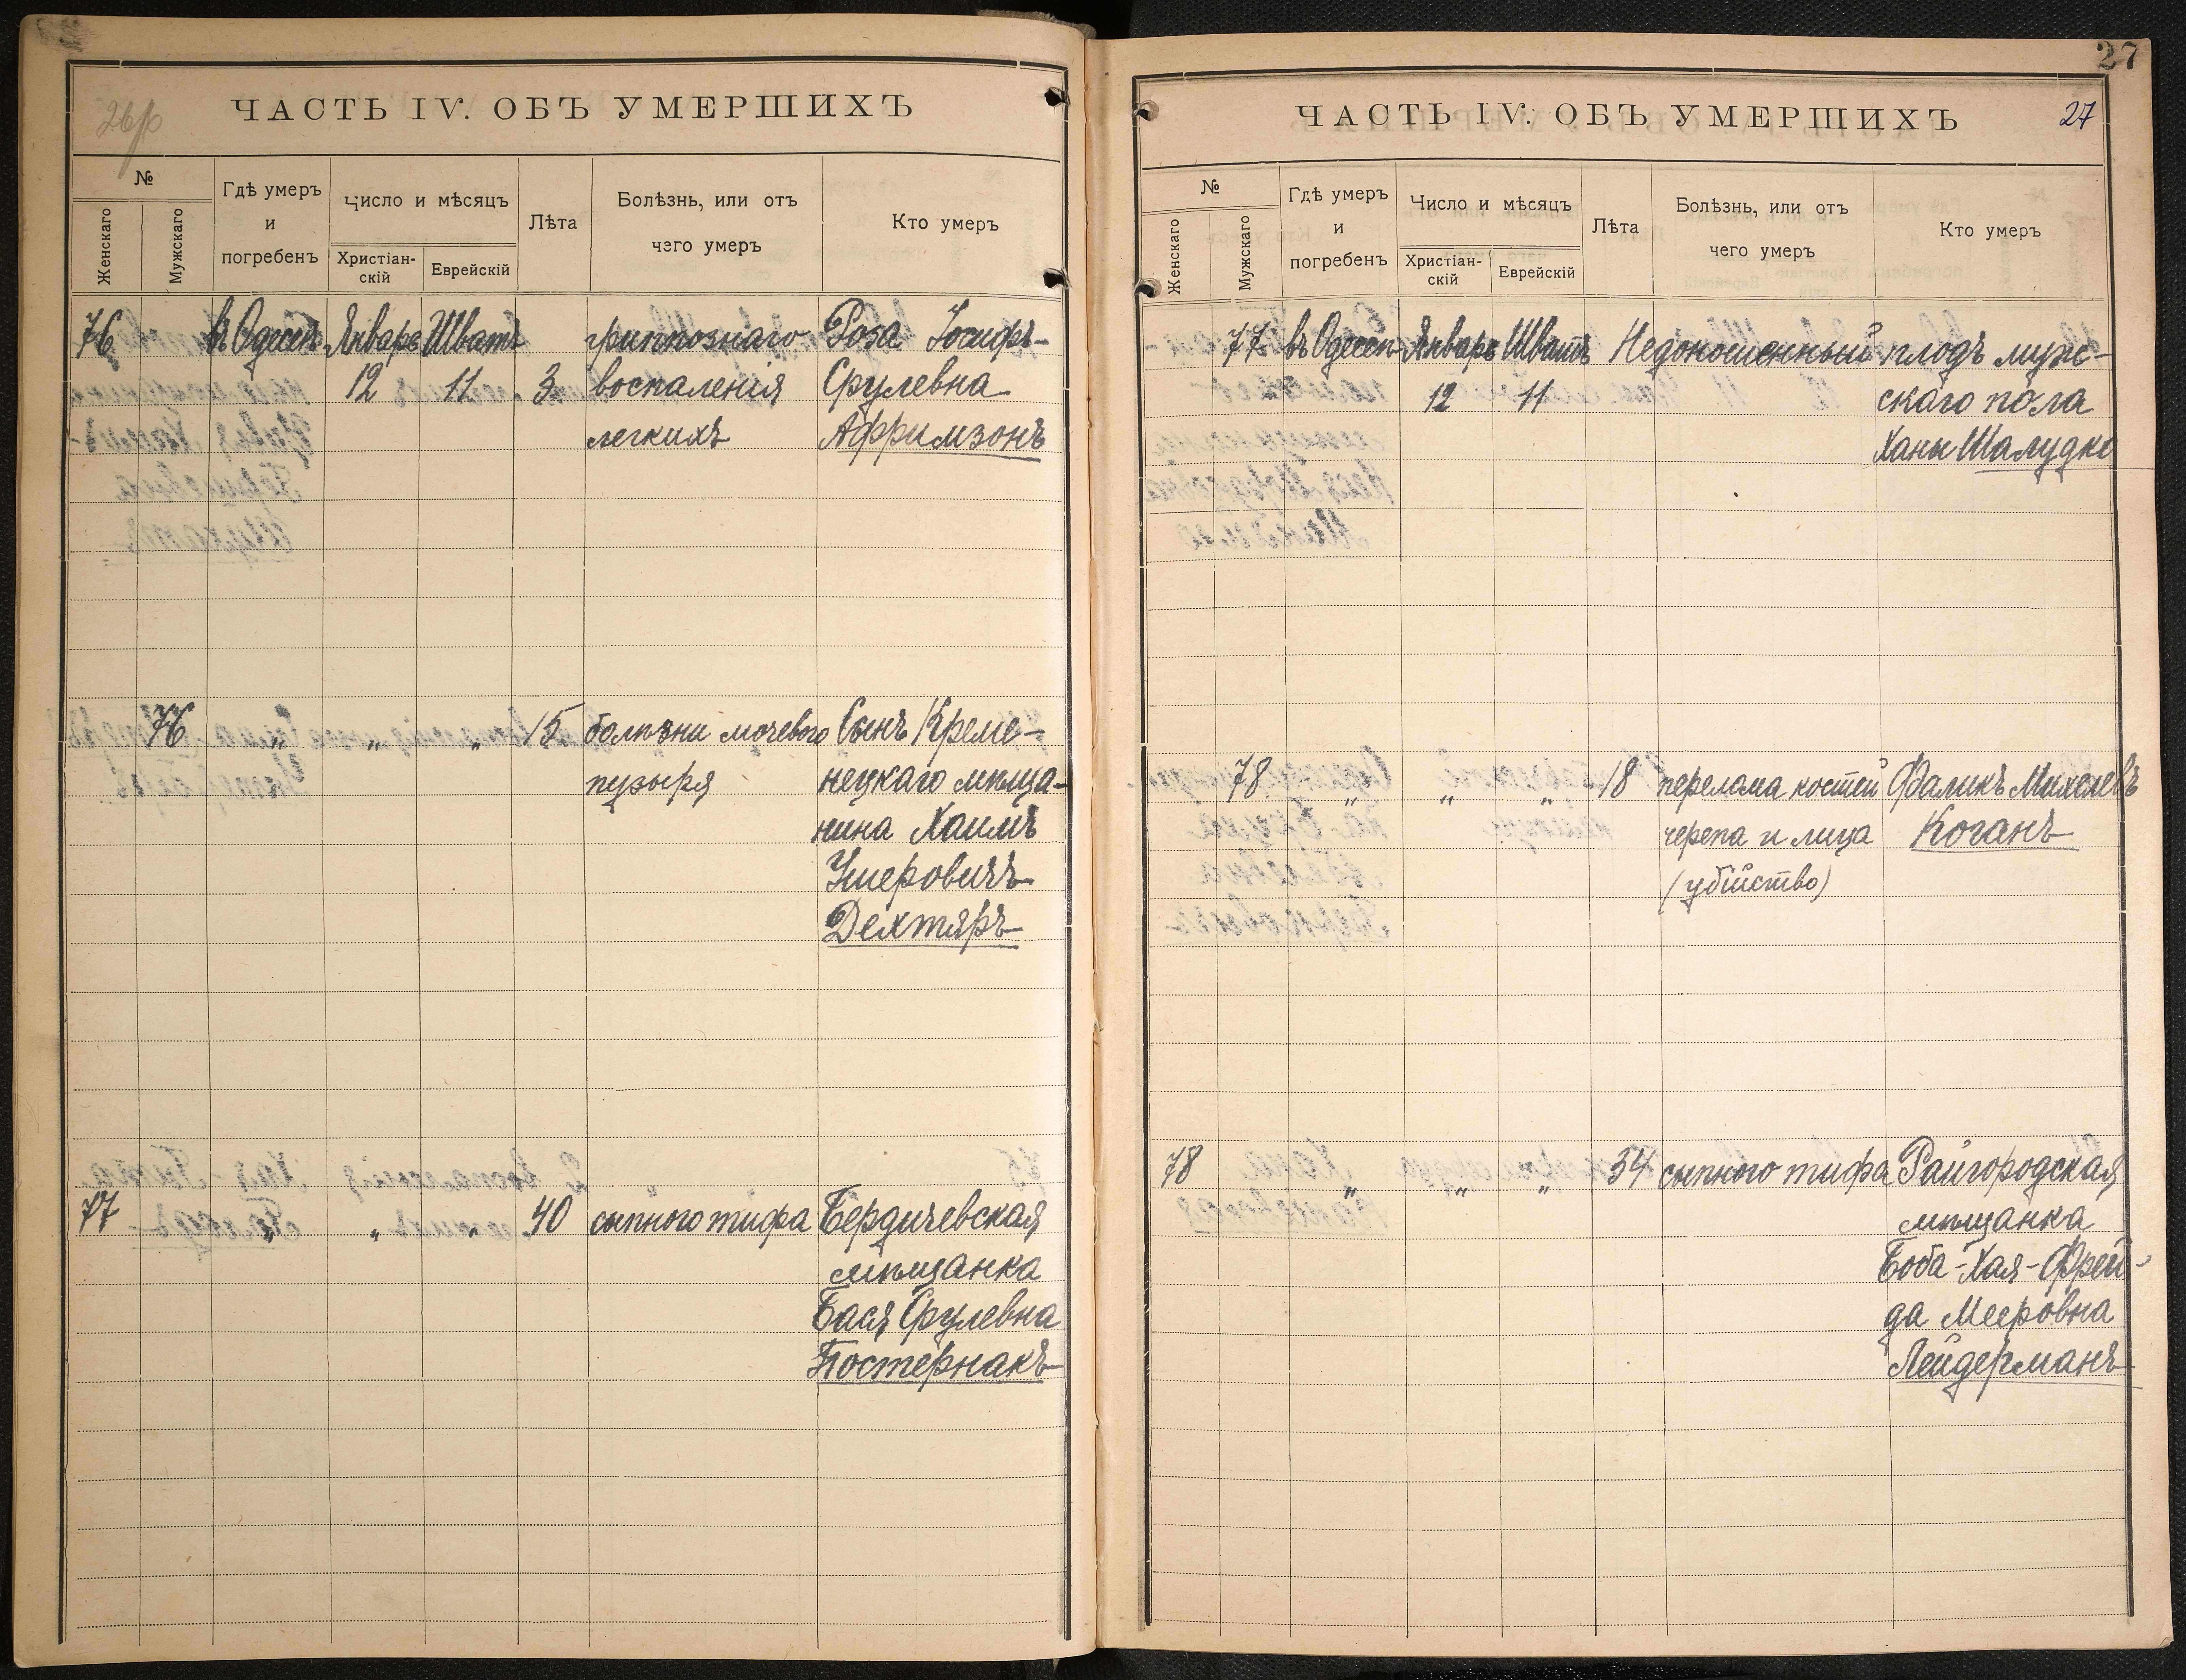 26 об
ЧАСТЬ IV. ОБЪ УМЕРШИХЪ
№
Женскаго
Мужскаго
Гдѣ умеръ
и
погребенъ
Число и мѣсяцъ
Христіан-
скій
Еврейскій
Лѣта
Болѣзнь, или отъ
чего умеръ
Кто умеръ
76 въ Одессѣ Январь Шватъ гриппознаго Роза Іосифъ-
12 11 3 воспаленія Срулевна
легкихъ Афримзонъ
76 " " " 15 болѣзни мочевого Сынъ Креме-
пузыря нецкаго мѣща-
нина Хаимъ
Ушеровичъ
Дехтяръ
77 " " " 40 сыпного тифа Бердичевская
мѣщанка
Бася Срулевна
Постернакъ
27
ЧАСТЬ IV. ОБЪ УМЕРШИХЪ
27
№
Женскаго
Мужскаго
Гдѣ умеръ
и
погребенъ
Число и мѣсяцъ
Христіан-
скій
Еврейскій
Лѣта
Болѣзнь, или отъ
чего умеръ
Кто умеръ
77 въ Одессѣ Январь Шватъ Недоношенный плодъ муж-
12 11 скаго пола
Ханы Шалудко
78 " " " 18 перелома костей Фаликъ Михелевъ
черепа и лица Коганъ
(убійство)
78 " " " 34 сыпного тифа Райгородская
мѣщанка
Боба-Хая-Фрей-
да Мееровна
Лейдерманъ